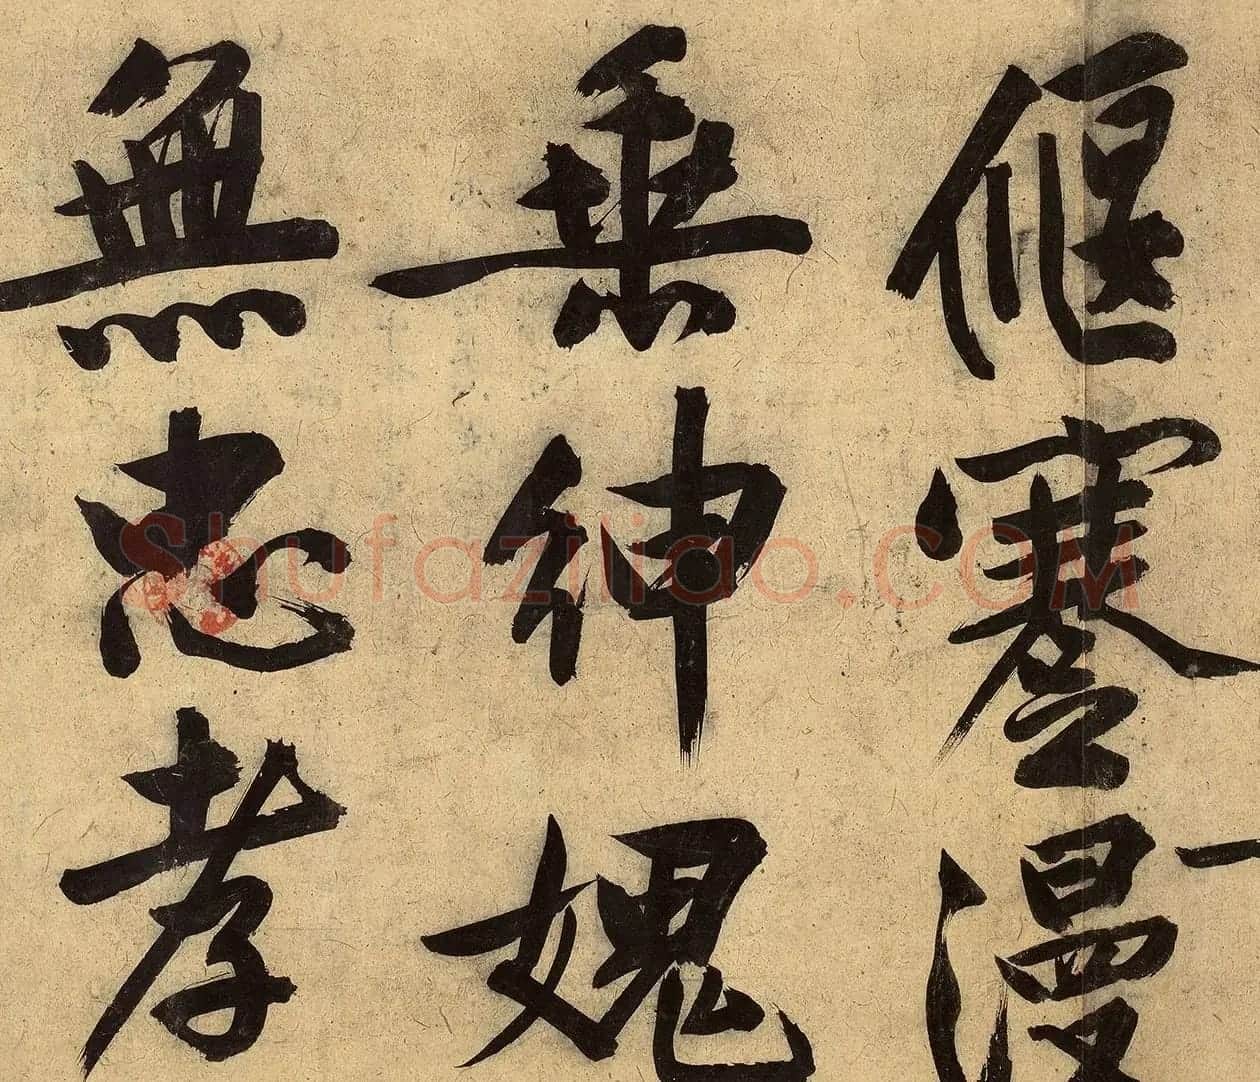 偃蹇漫
垂紳愧
無忠孝
Shufaziliao.COM